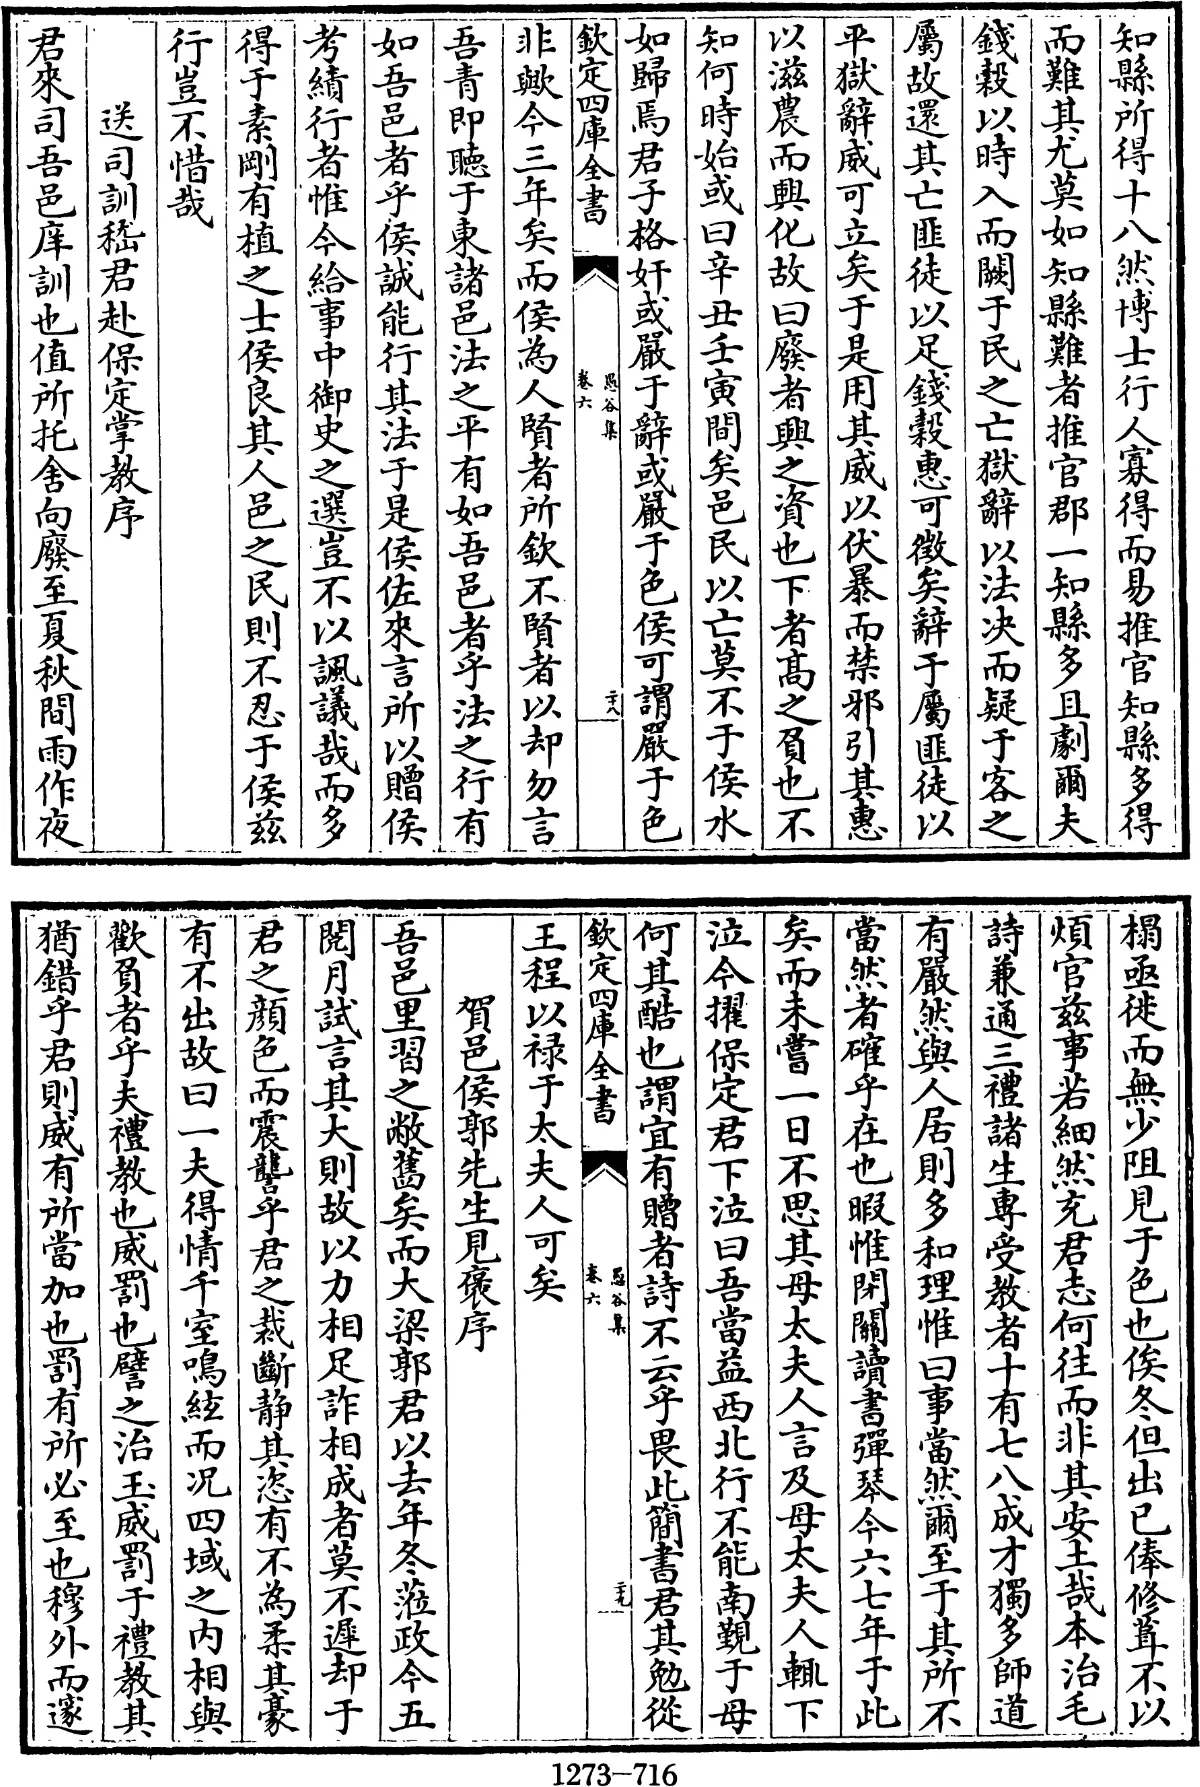 知縣所得十八然博士行人寡得而易推官知縣多得
而難其尤莫如知縣難者推官郡一知縣多且劇爾夫
錢穀以時入而闕于民之亡獄辭以法决而疑于客之
屬故還其亡匪徒以足錢穀惠可徵矣辭于屬匪徒以
平獄辭威可立矣于是用其威以伏暴而禁邪引其惠
以滋農而興化故曰廢者興之資也下者髙之負也不
知何時始或曰辛丑壬寅間矣邑民以亡莫不于侯水
如歸焉君子格奸或嚴于辭或嚴于色侯可謂嚴于色
欽定四庫全書
愚谷集
卷六
二十八
非歟今三年矣而侯為人賢者所欽不賢者以却勿言
吾青即聽于東諸邑法之平有如吾邑者乎法之行有
如吾邑者乎侯誠能行其法于是侯佐來言所以贈侯
考績行者惟今給事中御史之選豈不以諷議哉而多
得于素剛有植之士侯良其人邑之民則不忍于侯兹
行豈不惜哉
送司訓嵇君赴保定掌教序
君來司吾邑庠訓也值所托舍向廢至夏秋間雨作夜
榻亟徙而無少阻見于色也俟冬但出已俸修葺不以
煩官兹事若細然充君志何往而非其安土哉本治毛
詩兼通三禮諸生專受教者十有七八成才獨多師道
有嚴然與人居則多和理惟曰事當然爾至于其所不
當然者確乎在也暇惟閉關讀書彈琴今六七年于此
矣而未嘗一日不思其母太夫人言及母太夫人輒下
泣今擢保定君下泣曰吾當益西北行不能南覲于母
何其酷也謂宜有贈者詩不云乎畏此簡書君其勉從
欽定四庫全書
愚谷集
卷六
二十九
王程以祿于太夫人可矣
賀邑侯郭先生見褒序
吾邑里習之敝舊矣而大梁郭君以去年冬蒞政今五
閱月試言其大則故以力相足詐相成者莫不遲却于
君之顔色而震讋乎君之裁斷静其恣有不為柔其豪
有不出故曰一夫得情千室鳴絃而况四域之内相與
歡負者乎夫禮教也威罰也譬之治玉威罰于禮教其
猶錯乎君則威有所當加也罰有所必至也穆外而邃
1273—716